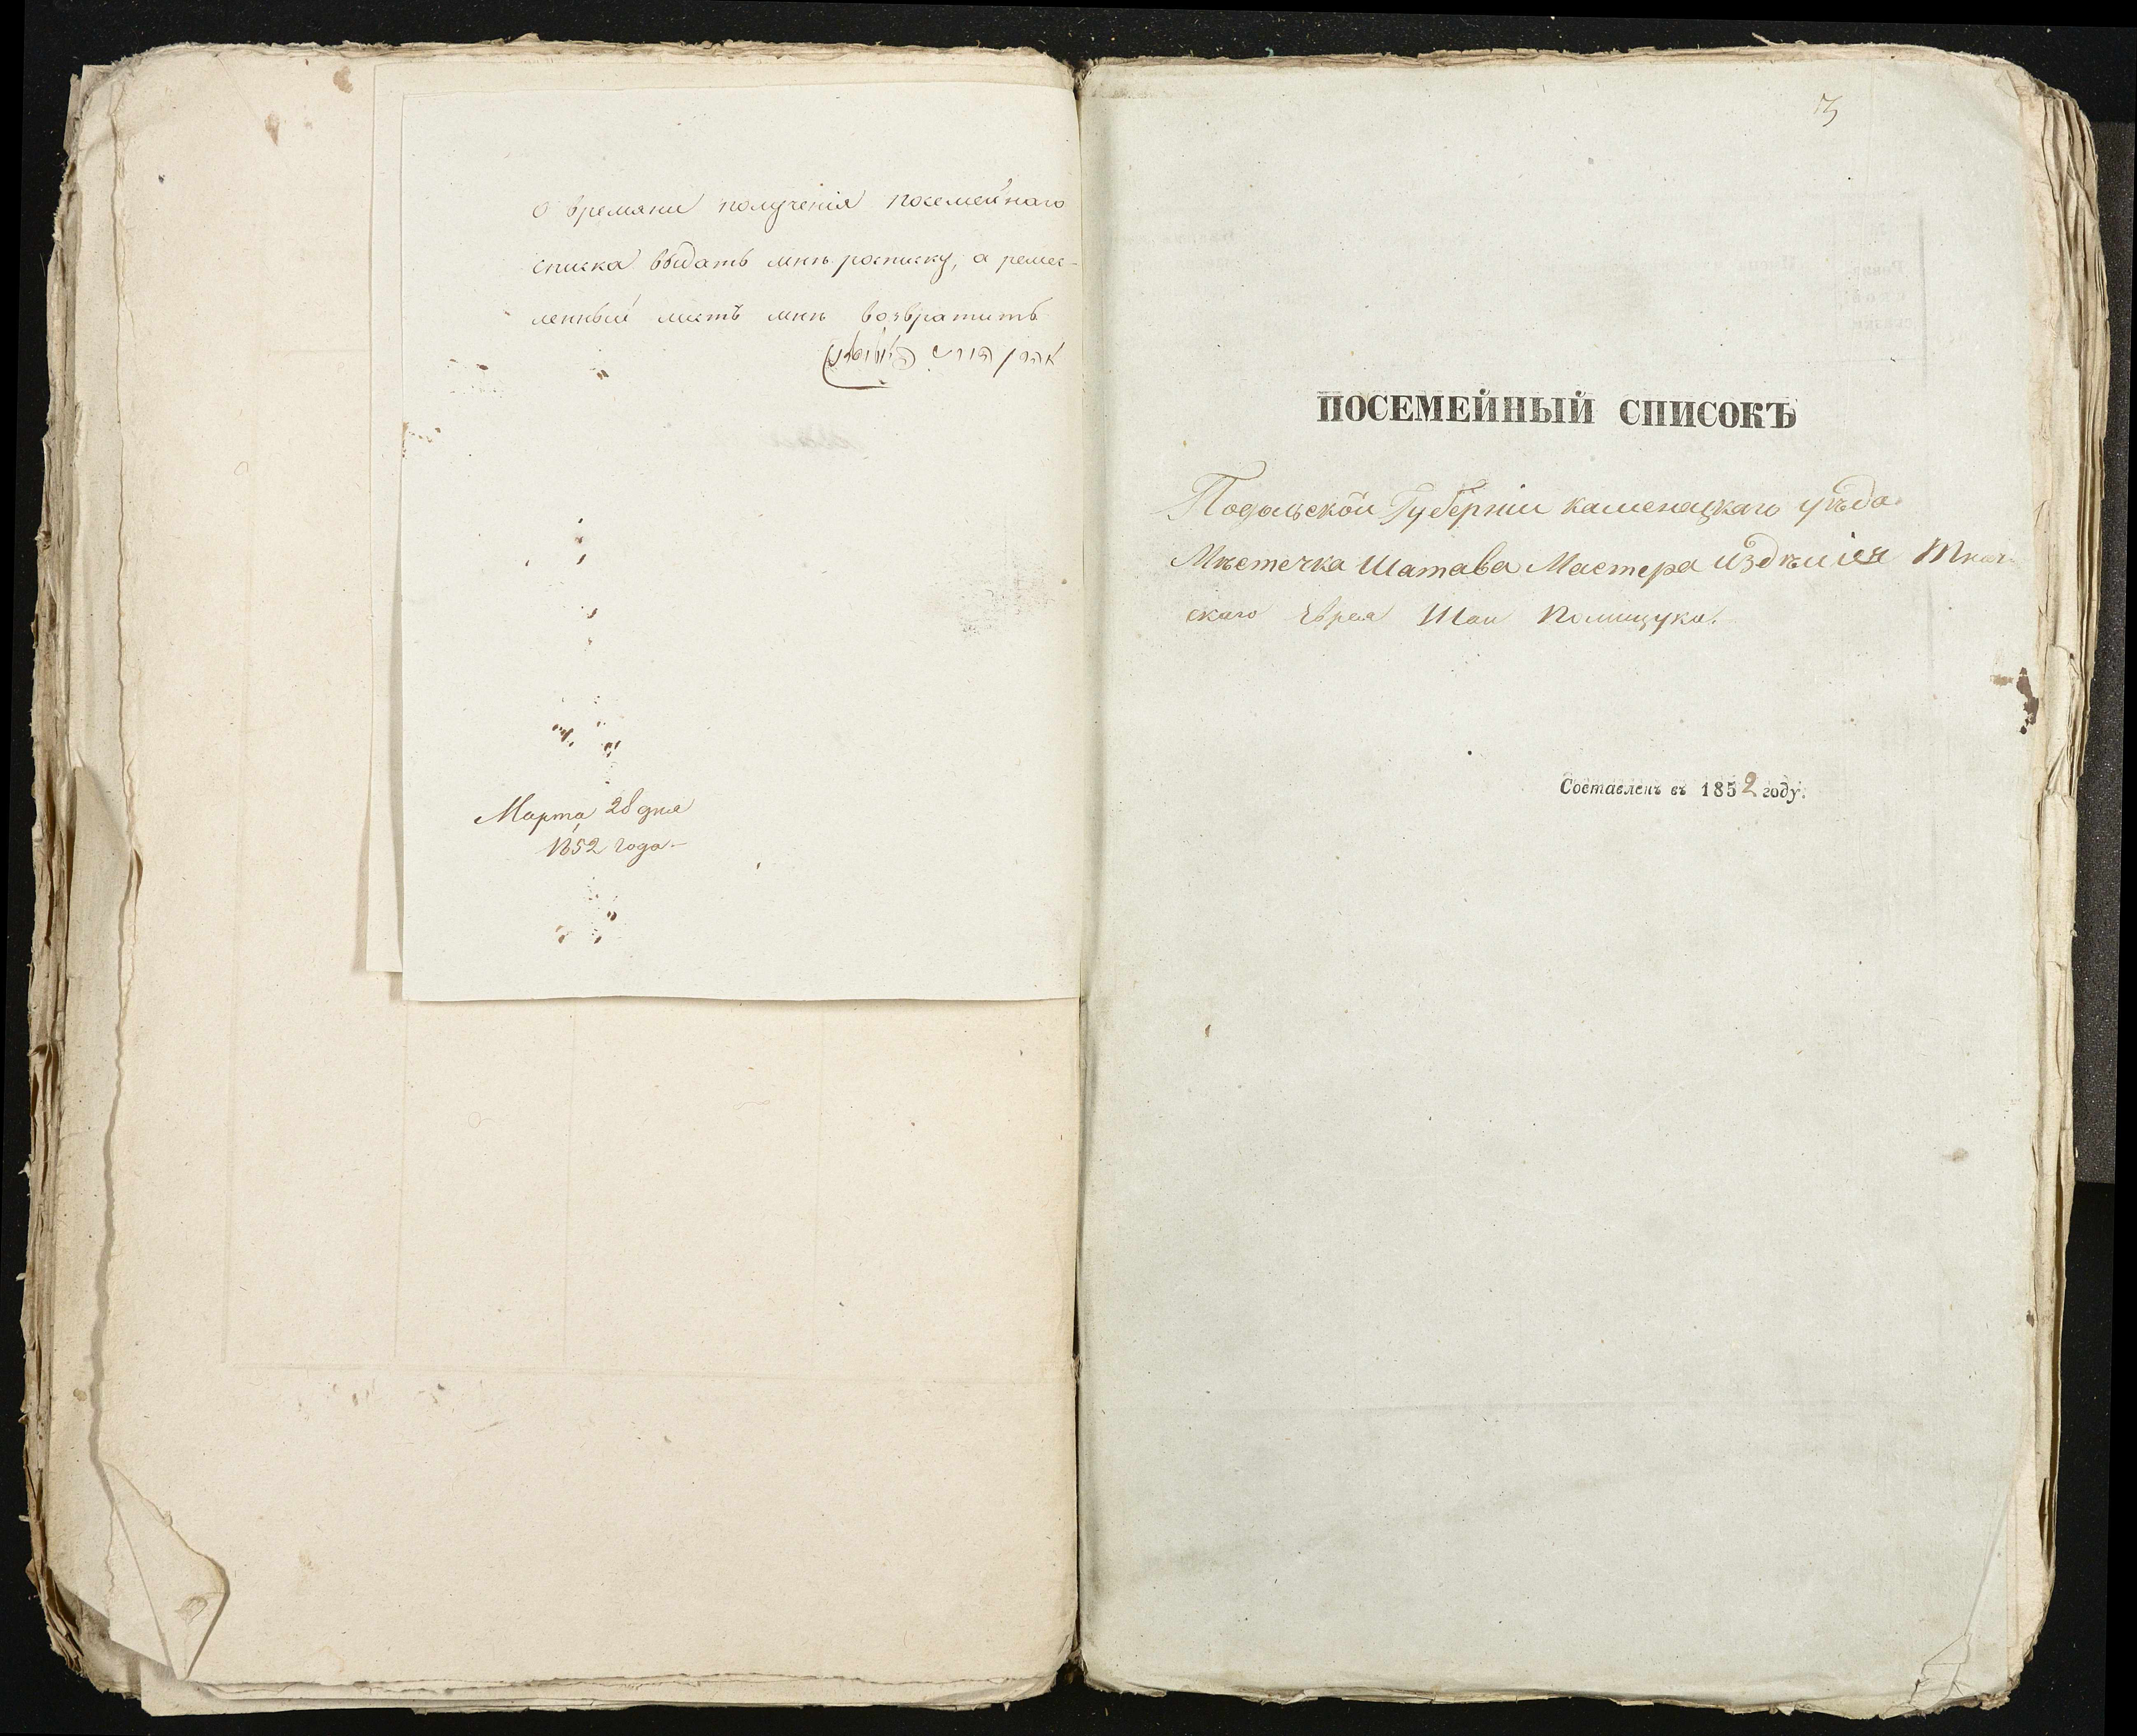 о времяни полученія посемейнаго
списка выдать мнѣ росписку, а ремес-
ленный листъ мнѣ возвратить
Марта 28 дня
1852 года.
3
ПОСЕМЕЙНЫЙ СПИСОКЪ
Подольской Губерніи каменецкаго уѣзда
Мѣстечка Шатава Мастера издѣлія Ткач-
скаго Еврея Шаи Полищука.
Составленъ въ 1852 году.